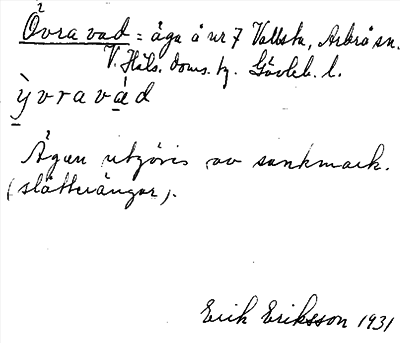 Övra vad = äga å nr 7 Vallsta, Arbrå sn.
V. Häls. doms. tg. Gävleb. l.
ỳvravád
Ägan utgöres av sankmark.
(slåtterängar).
Erik Eriksson 1931